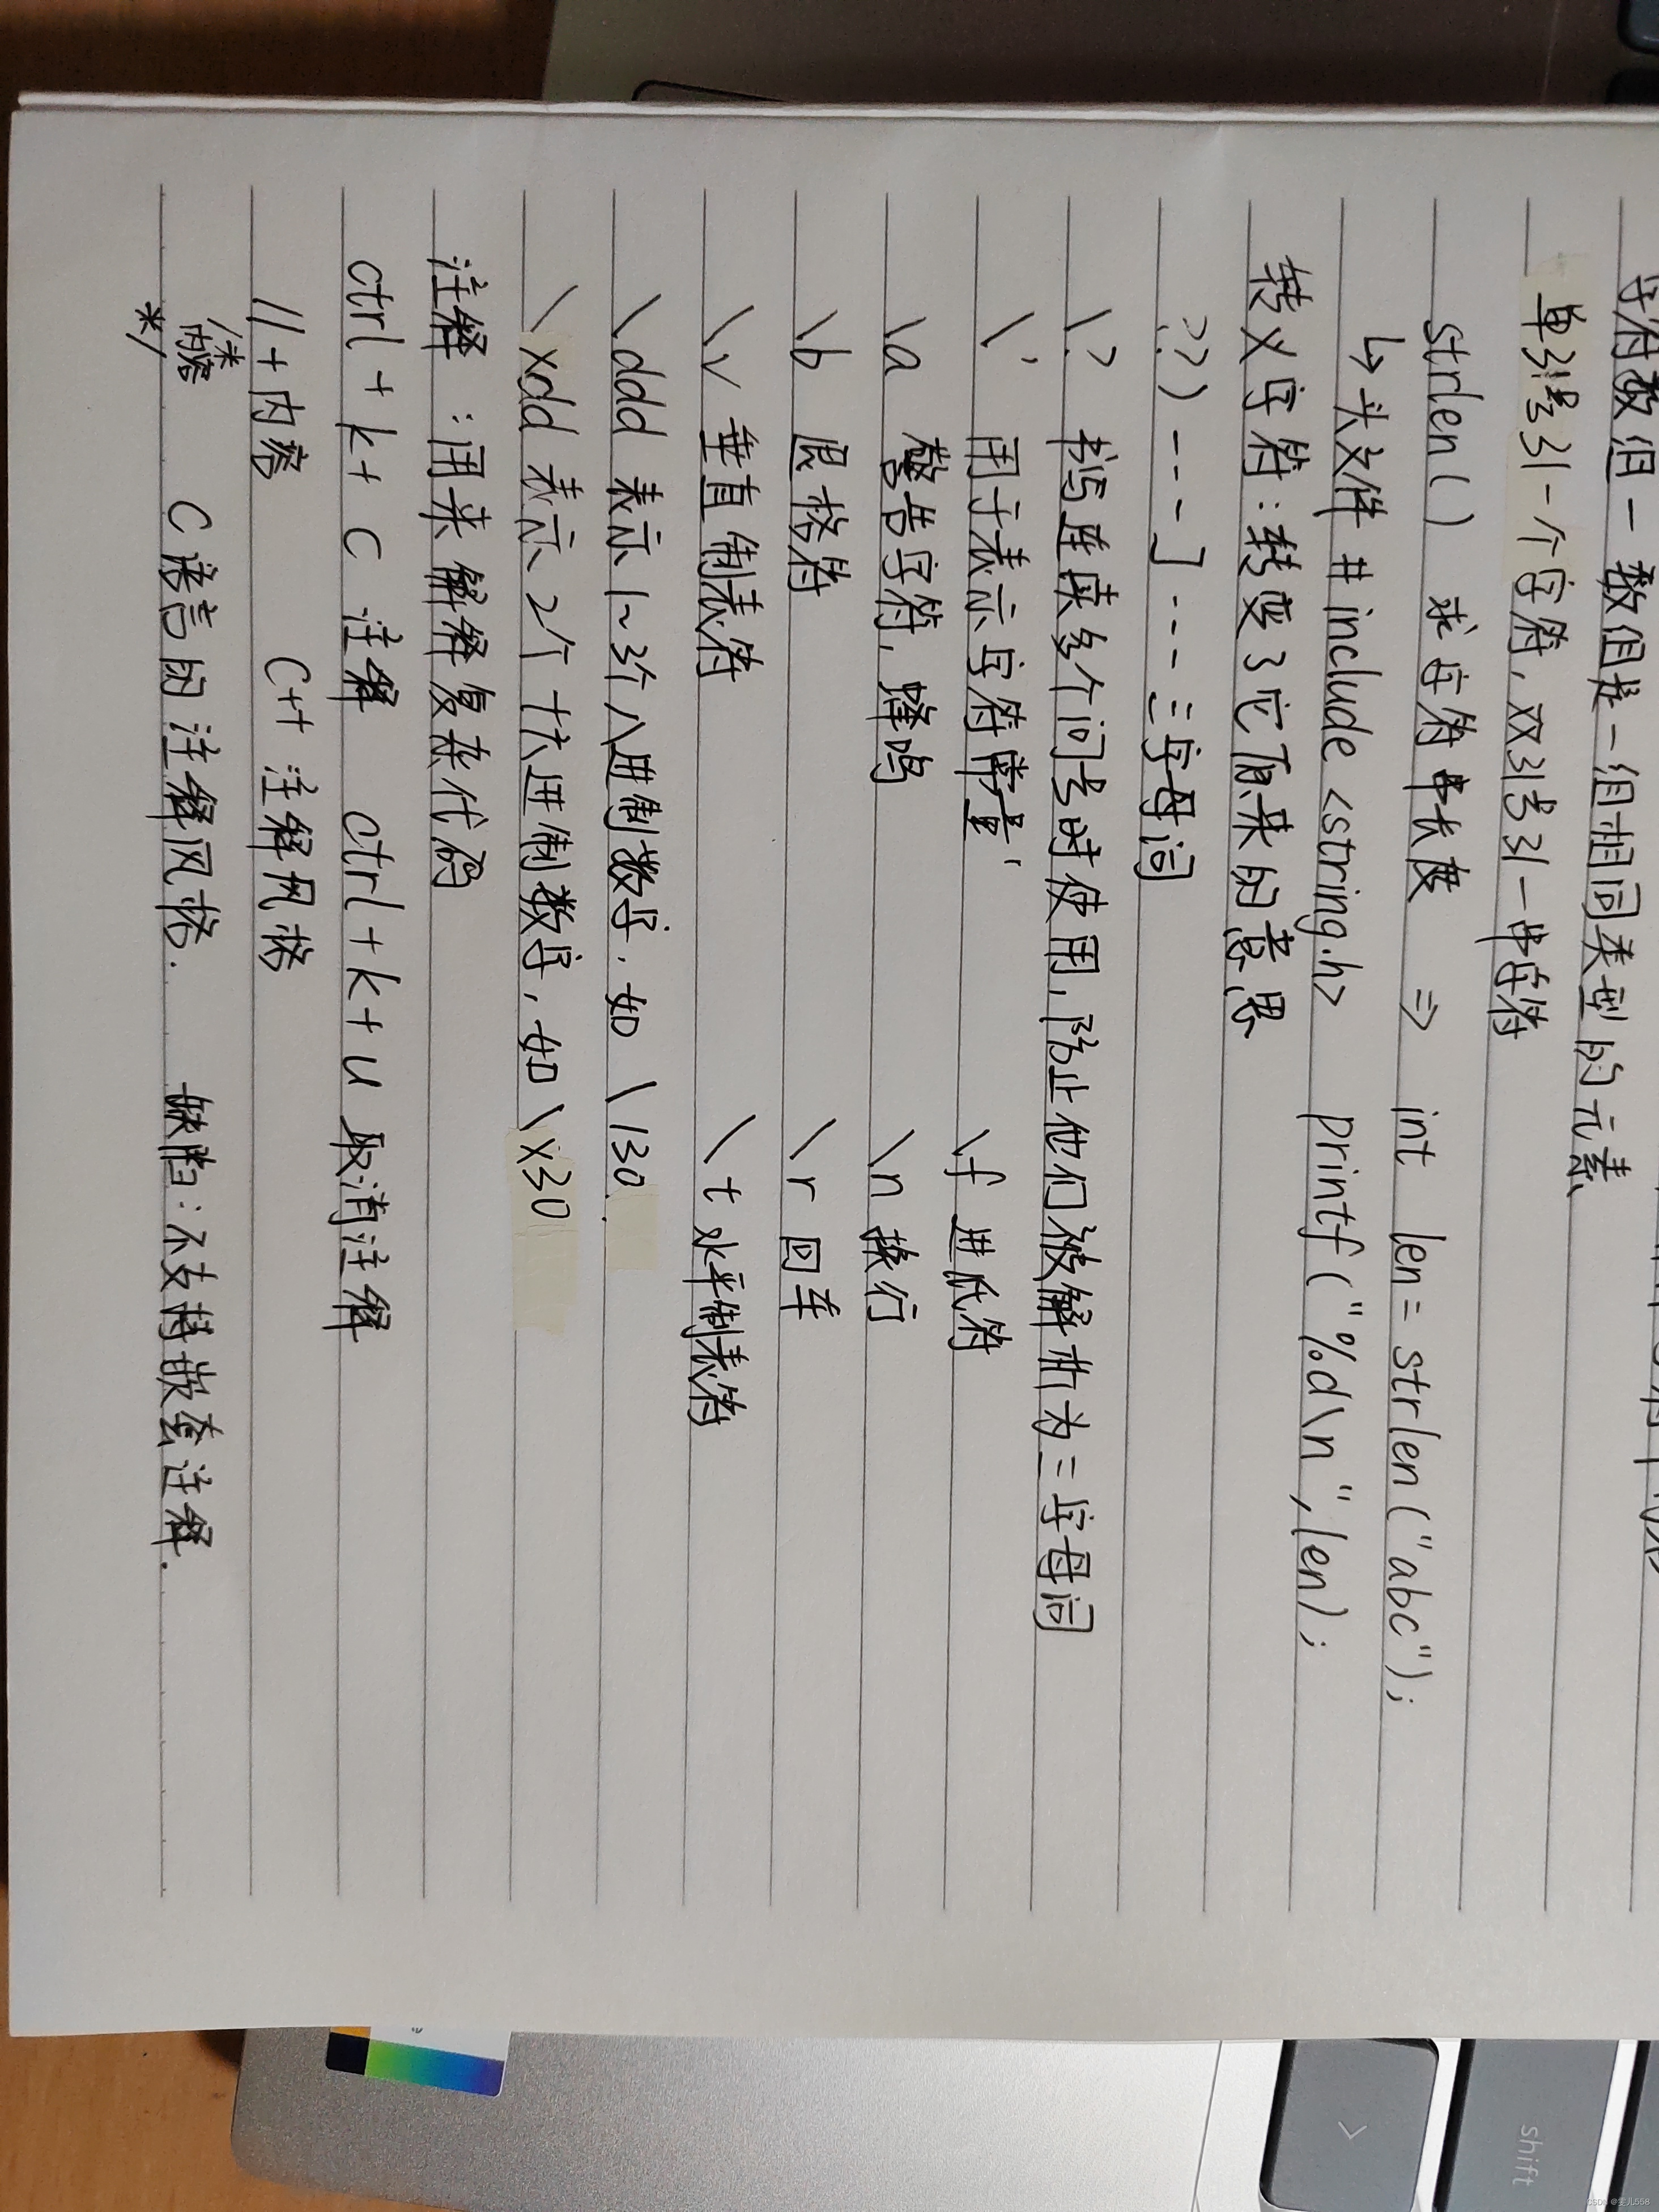 字符数组一数组是一组相同类型的元素
单引号引一个字符,双引号引一串字符
strlen() 求字符串长度 => int len = strlen("abc");
↳头文件 #include <string.h> printf("%d\n",len);
转义字符:转变了它原来的意思
??) --- ] --- 三字母词
\? 书写连续多个问号时使用,防止他们被解析为三字母词
\' 用于表示字符常量' \f 进纸符
\a 警告字符,蜂鸣 \n 换行
\b 退格符 \r 回车
\v 垂直制表符 \t 水平制表符
\ddd 表示1~3个八进制数字.如 \130.
\xdd 表示2个十六进制数字,如\x30
注释:用来解释复杂代码
ctrl+k+c 注释 ctrl+k+u 取消注释
//+内容 C++ 注释风格
/*
内容 C语言的注释风格. 缺陷:不支持嵌套注释.
*/
shift
CSDN @雯儿558